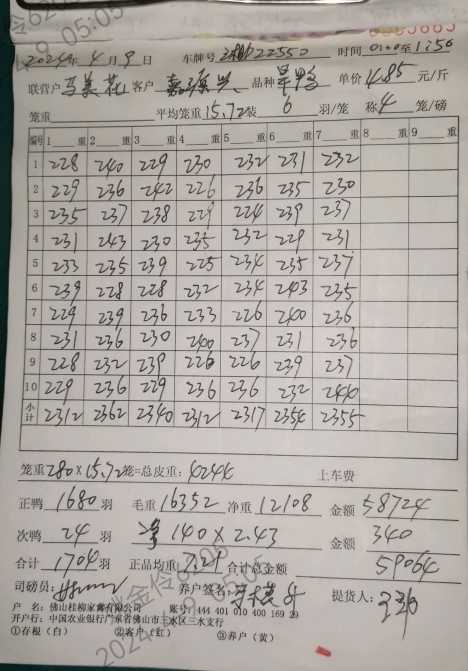 2024年4月9日 车牌号 22550 时间 0100至1:50
联营户 马美花 客户 品种 旱鸭 单价 4.85 元/斤
笼重 平均笼重 15.72 装 6 羽/笼 称 4 笼/磅
编号 1 重 2 重 3 重 4 重 5 重 6 重 7 重 8 重 9 重
1 228 240 229 230 232 231 232
2 229 236 242 226 236 235 230
3 235 237 238 229 224 239 237
4 231 243 230 235 232 229 231
5 233 235 239 225 234 235 237
6 239 228 228 232 234 243 235
7 229 239 236 233 226 240 236
8 231 236 230 240 237 231 236
9 228 232 239 226 226 239 237
10 229 236 229 236 236 232 244
小计 2312 2362 2340 2312 2317 2354 2355
笼重 280×15.72 笼=总皮重: 4244 上车费
正鸭 1680 羽 毛重 16352 净重 12108 金额 58724
次鸭 24 羽 140×2.43 金额 340
合计 1704 羽 正品均重 7.21 合计总金额 59064
司磅员: 养户签名: 提货人:
户 名: 佛山桂柳家禽有限公司 账号: 444 401 010 400 169 29
开户行: 中国农业银行广东省佛山市三水区三水支行
①存根（白） ②客户（红） ③养户（黄）